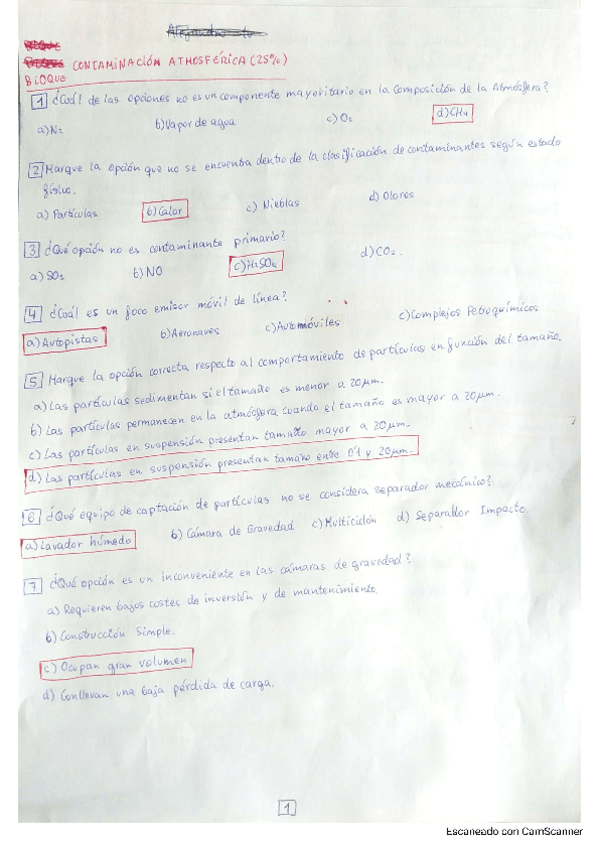 BLOQUE CONTAMINACIÓN ATMOSFÉRICA (25%)
1 ¿Cuál de las opciones no es un componente mayoritario en la composición de la Atmósfera?
a) N₂ b) Vapor de agua c) O₂ d) CH₄
2 Marque la opción que no se encuentra dentro de la clasificación de contaminantes según estado
físico.
a) Partículas b) Calor c) Nieblas d) Olores
3 ¿Qué opción no es contaminante primario?
a) SO₂ b) NO c) H₂SO₄ d) CO₂.
4 ¿Cuál es un foco emisor móvil de línea?
a) Autopistas b) Aeronaves c) Automóviles c) Complejos Petroquímicos
5 Marque la opción correcta respecto al comportamiento de partículas en función del tamaño.
a) Las partículas sedimentan si el tamaño es menor a 20 µm.
b) Las partículas permanecen en la atmósfera cuando el tamaño es mayor a 20 µm.
c) Las partículas en suspensión presentan tamaño mayor a 20 µm.
d) Las partículas en suspensión presentan tamaño entre 0'1 y 20 µm.
6 ¿Qué equipo de captación de partículas no se considera separador mecánico?
a) Lavador húmedo b) Cámara de Gravedad c) Multiciclón d) Separador Impacto
7 ¿Qué opción es un inconveniente en las cámaras de gravedad?
a) Requieren bajos costes de inversión y de mantenimiento.
b) Construcción simple.
c) Ocupan gran volumen
d) Conllevan una baja pérdida de carga.
1
Escaneado con CamScanner